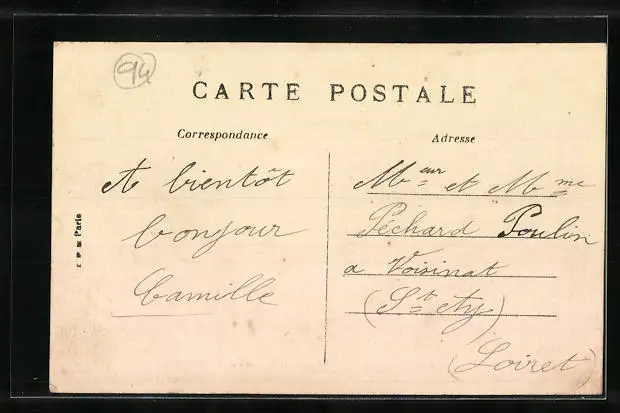 94
CARTE POSTALE
Correspondance
Adresse
A bientôt
bonjour
Camille
Meur et Mme
Péchard Poulin
a Voisinat
(St Ay)
(Loiret)
Paris